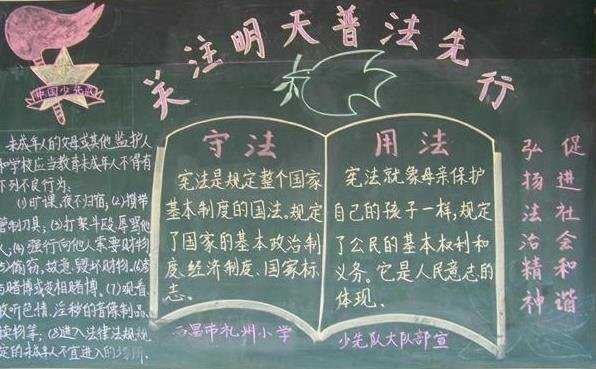 关注明天普法先行
中国少先队
未成年人的父母或其他监护人
和学校应当教育未成年人不得有
下列不良行为:
(1)旷课、夜不归宿;(2)携带
管制刀具;(3)打架斗殴、辱骂他
人;(4)强行向他人索要财物
(5)偷窃、故意毁坏财物;(6)参
与赌博或变相赌博;(7)观看
收听色情、淫秽的音像制品、
读物等;(8)进入法律法规规
定的未成年人不宜进入的场所.
守法
宪法是规定整个国家
基本制度的国法。规定
了国家的基本政治制
度、经济制度、国家标
志。
用法
宪法就象母亲保护
自己的孩子一样,规定
了公民的基本权利和
义务。它是人民意志的
体现。
西昌市礼州小学
少先队大队部宣
促进社会和谐
弘扬法治精神